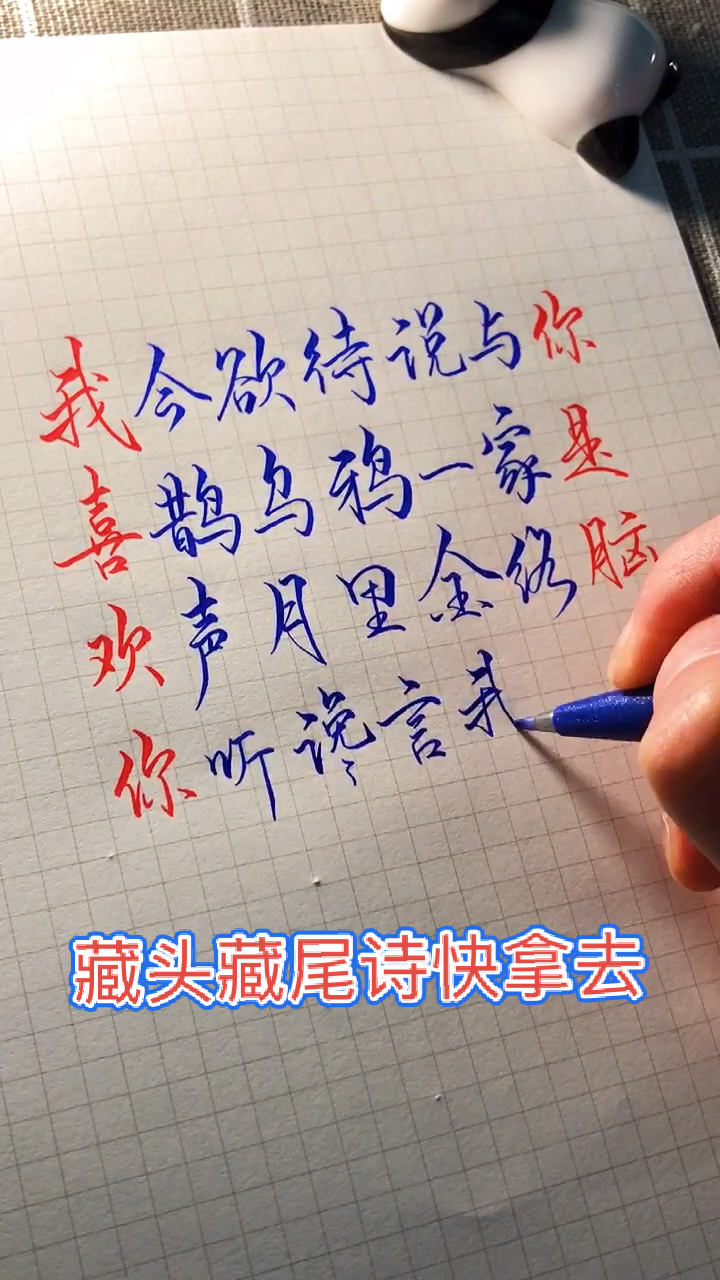 我今欲待说与你
喜鹊乌鸦一家是
欢声月里金络脑
你听谗言我
藏头藏尾诗快拿去